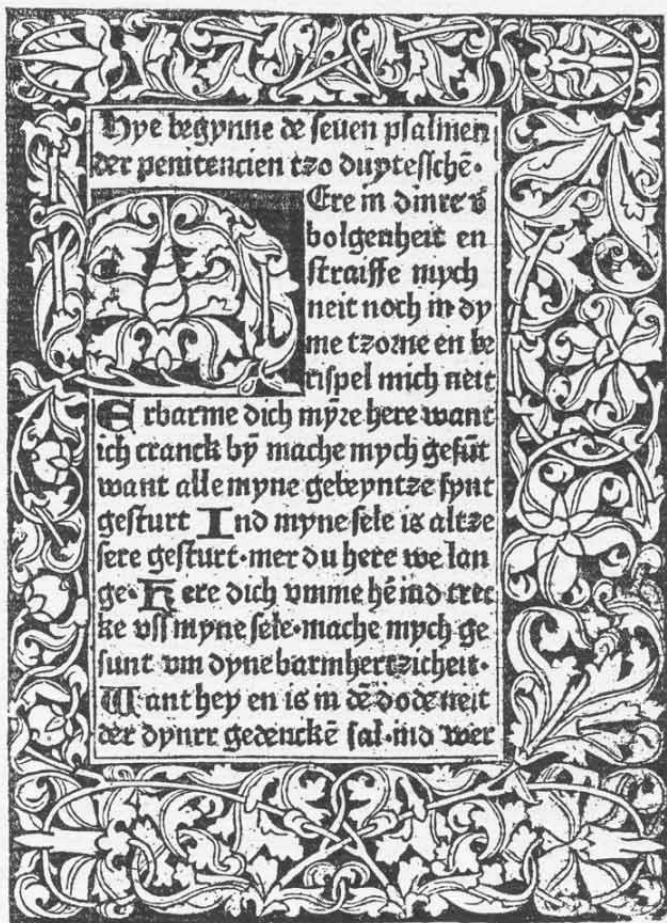 Hye begynne de seuen psalmen
der penitencien tzo duytesschē·
Ere in dinre v̄
bolgenheit en
straiffe mych
neit noch in dy
me tzorne en be
rispel mich neit
Erbarme dich myre here want
ich cranck bÿ mache mych gesūt
want alle myne gebeyntze synt
gesturt Ind myne sele is altze
sere gesturt·mer du here we lan
ge·Here dich vmme hē ind trec
ke vss myne sele·mache mych ge
sunt vm dyne barmhertzicheit·
Want hey en is in dē dodē neit
der dynrr gedenckē sal·ind wer